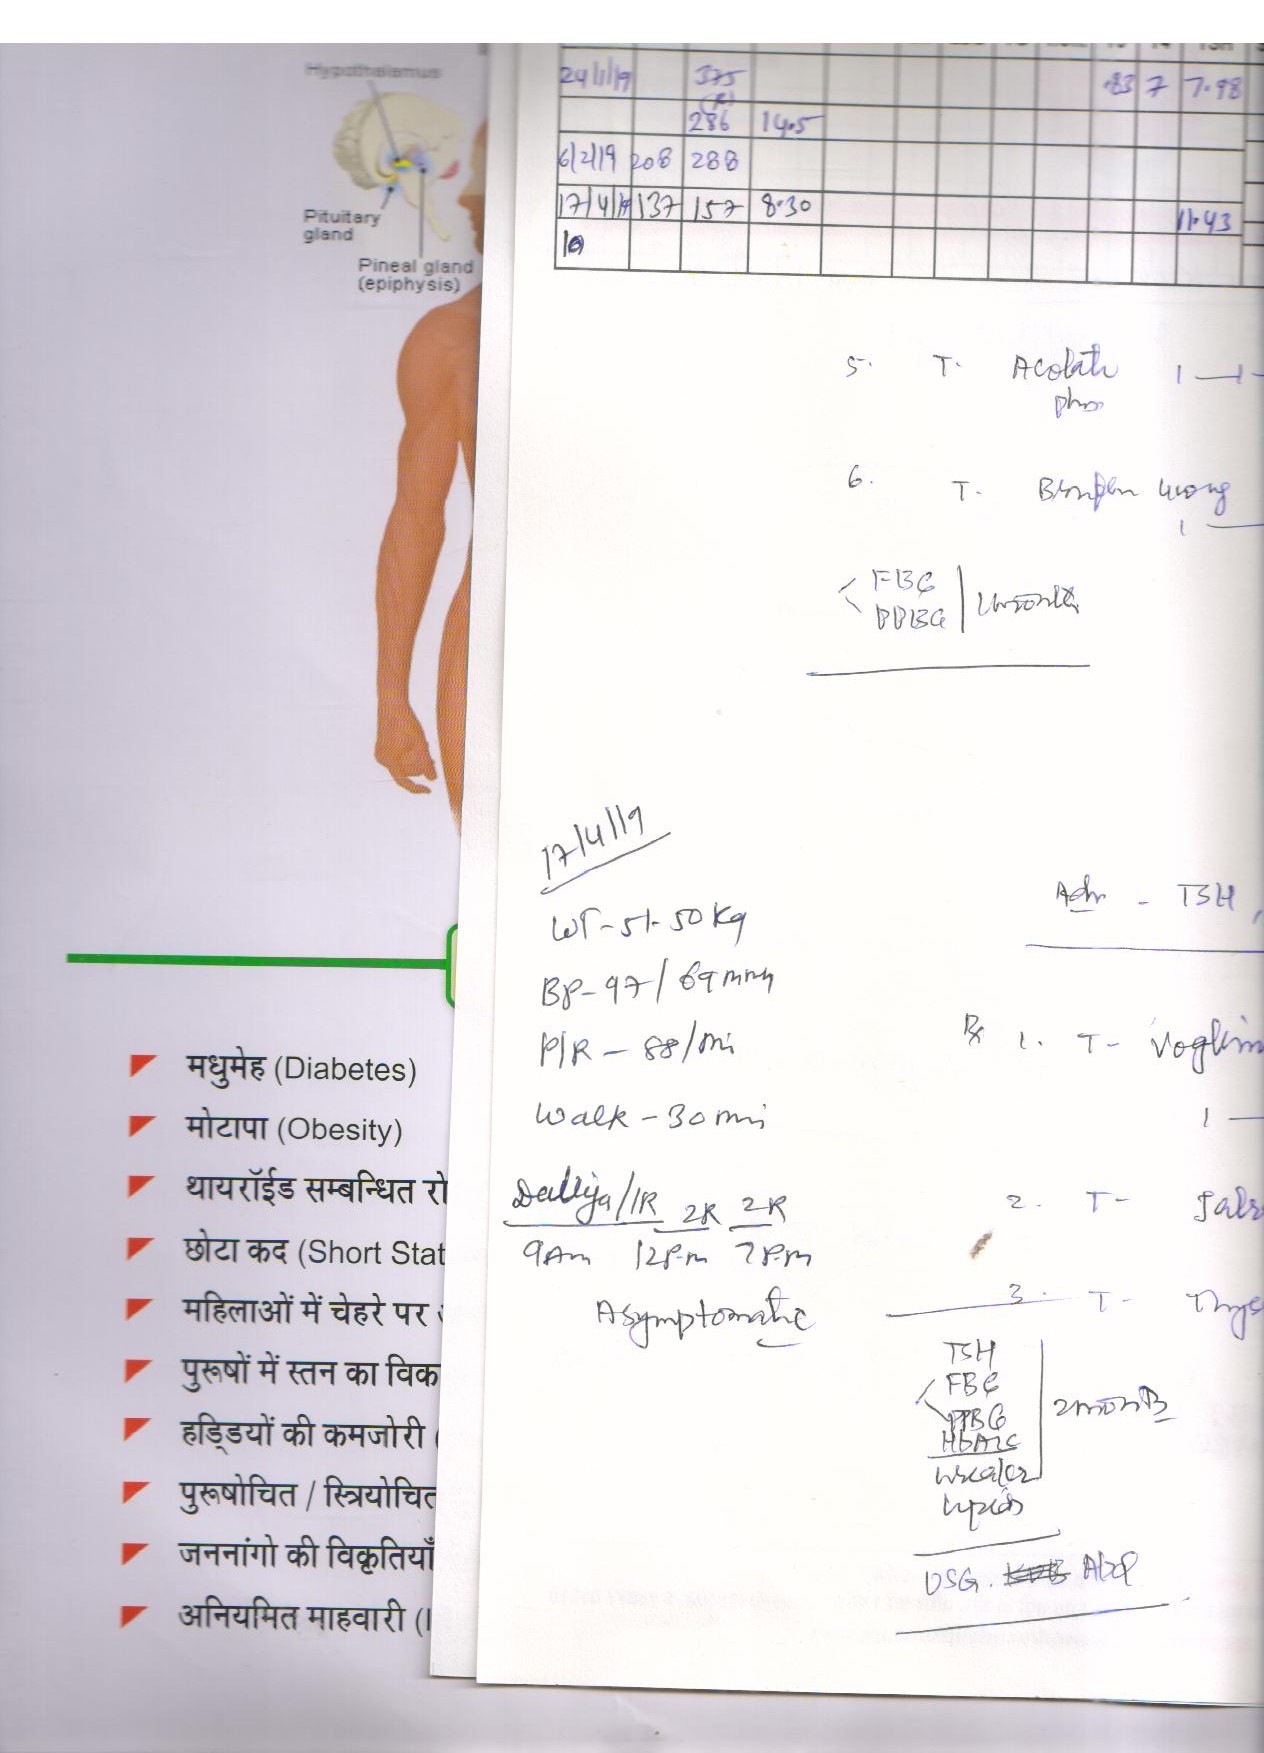 Hypothalamus
Pituitary
gland
Pineal gland
(epiphysis)
24/1/19 375 .83 7 7.98
(R)
286 14.5
6/2/19 208 288
17/4/19 137 157 8.30 11.43
5. T. 1 — 1
6. T.
1 —
FBG
PPBG
17/4/19
WT - 51.50 Kg
BP - 97/69 mmHg
P/R - 88/mi
Walk - 30 min
Daliya/1R 2R 2R
9 Am 12 P.m 7 P.m
Asymptomatic
Adv - TSH,
Rx 1. T - Voglim
1 —
2. T -
3. T -
TSH
FBG
PPBG
HbA1c
2 months
Lipids
USG. Abd
मधुमेह (Diabetes)
मोटापा (Obesity)
थायरॉईड सम्बन्धित रो
छोटा कद (Short Stat
महिलाओं में चेहरे पर
पुरूषों में स्तन का विक
हड्डियों की कमजोरी (
पुरूषोचित / स्त्रियोचित
जननांगो की विकृतियाँ
अनियमित माहवारी (